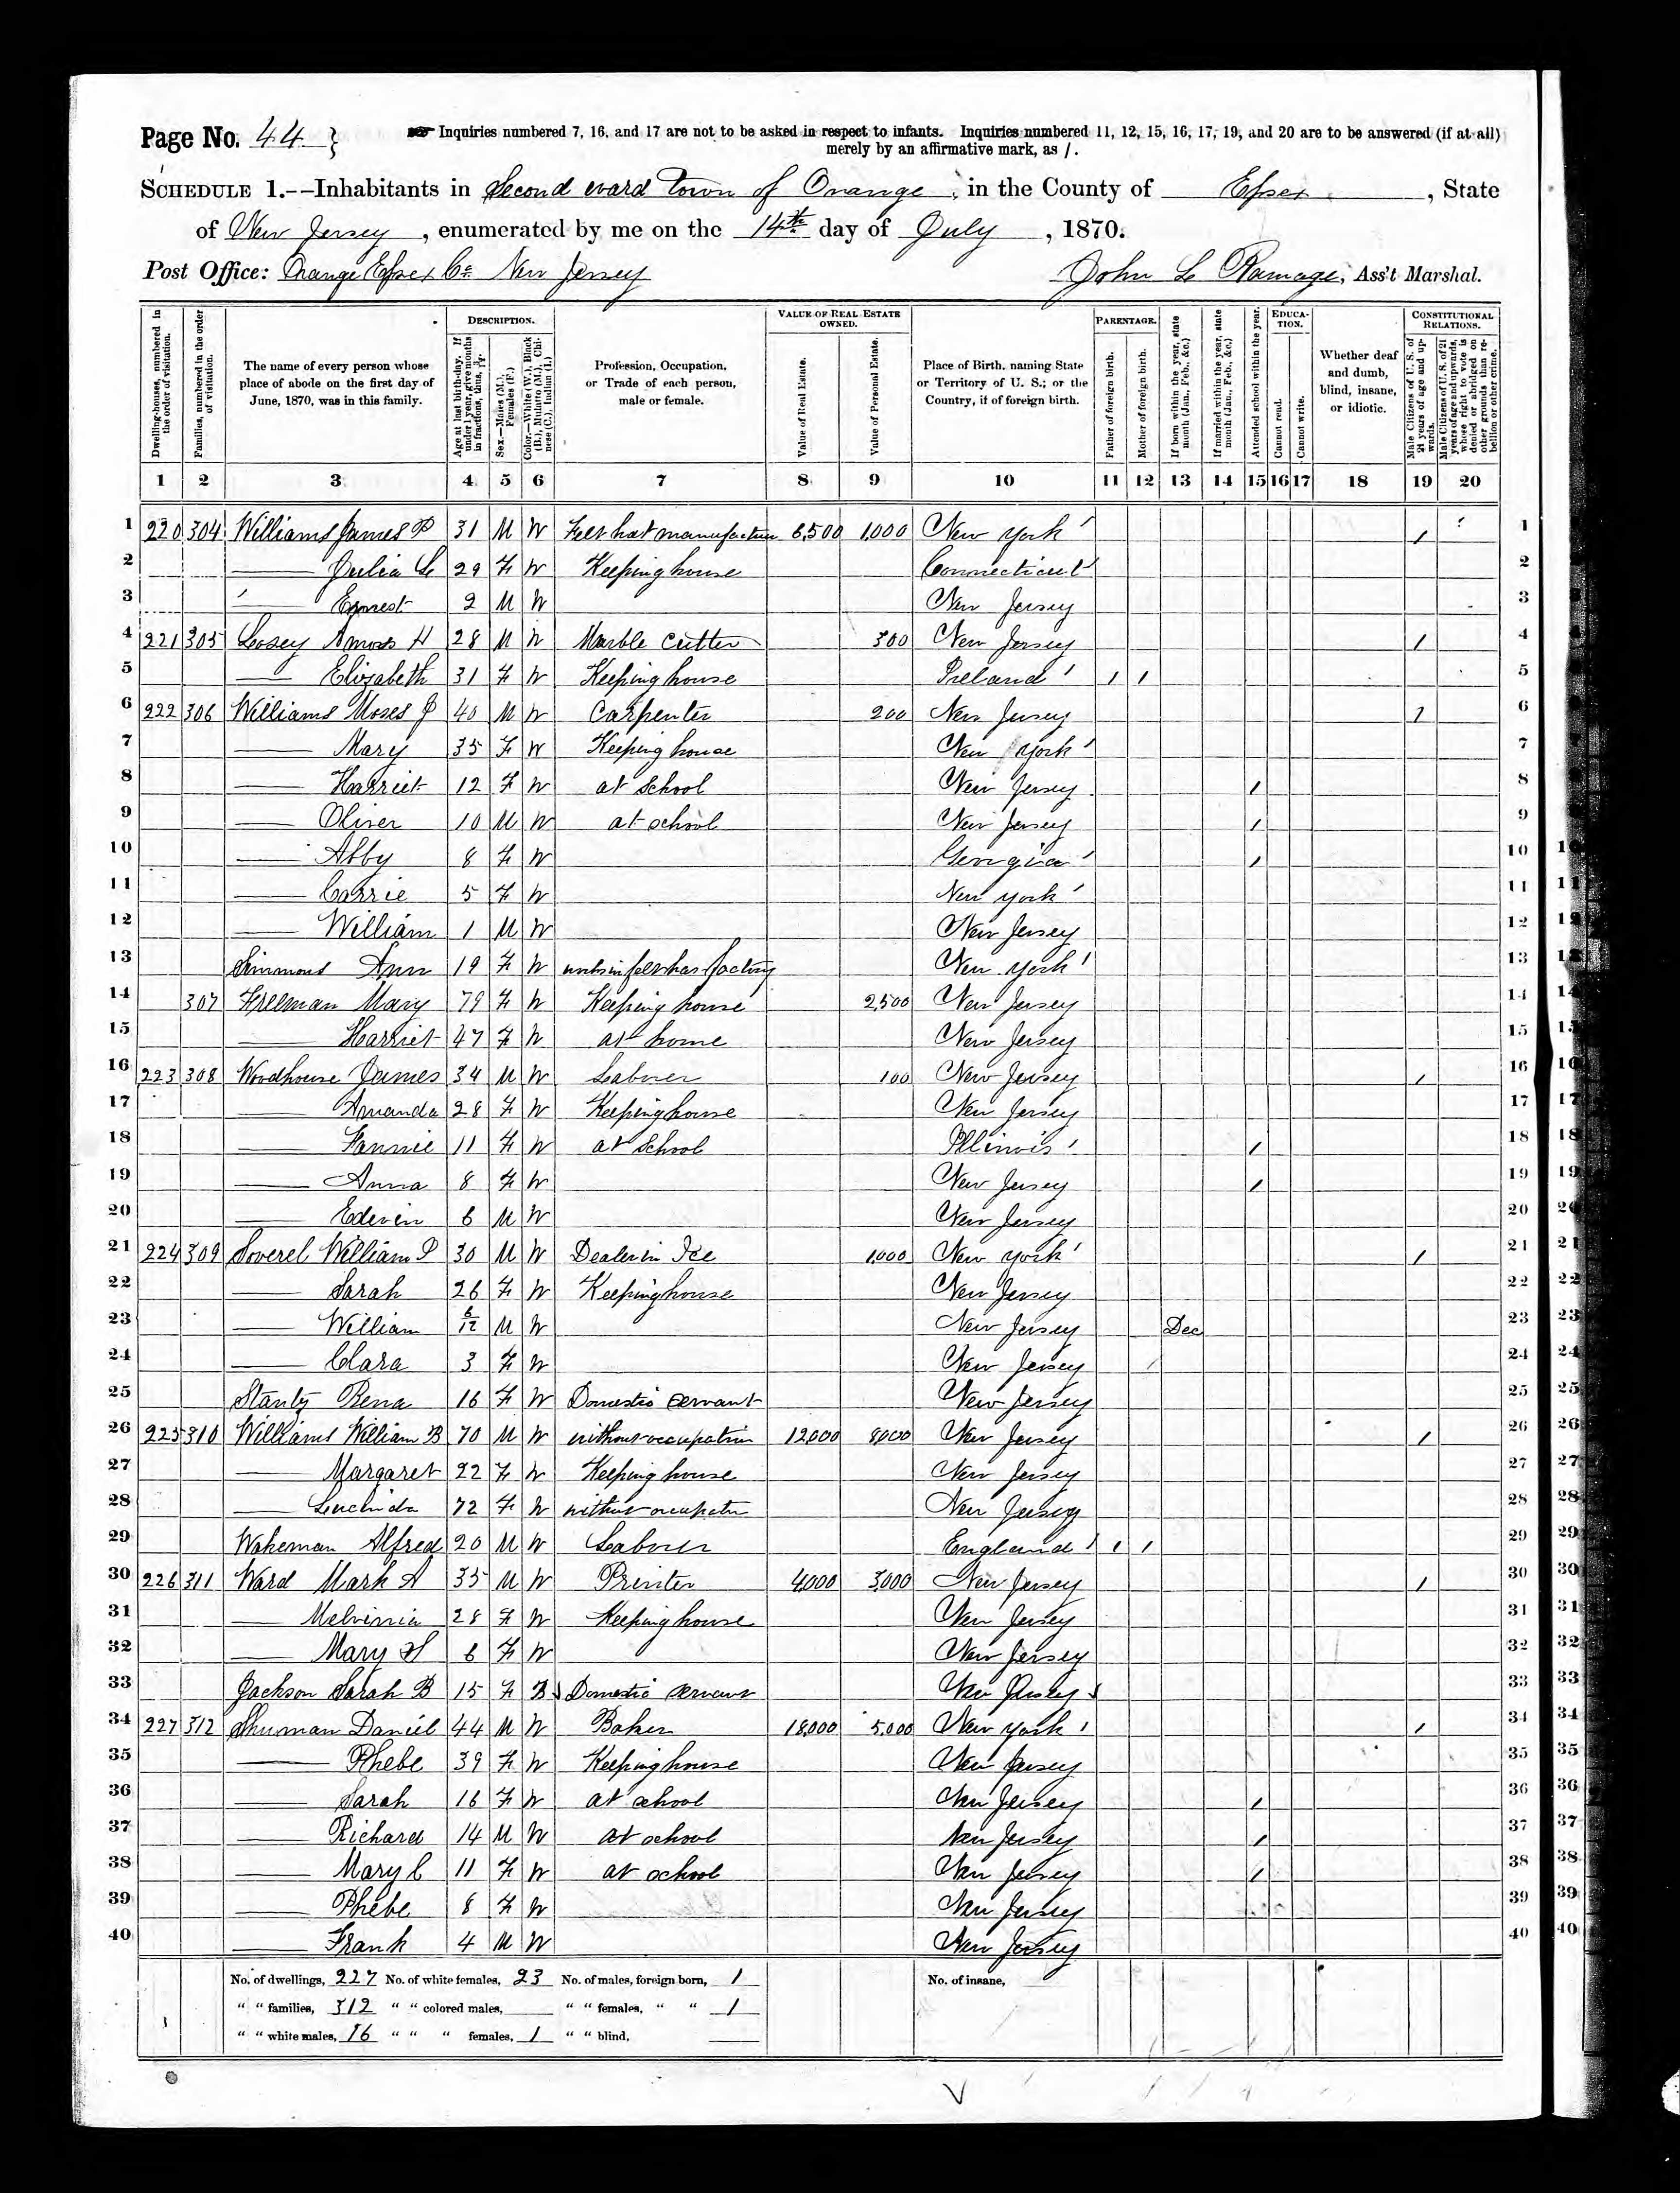 Page No. 44 } Inquiries numbered 7, 16, and 17 are not to be asked in respect to infants. Inquiries numbered 11, 12, 15, 16, 17, 19, and 20 are to be answered (if at all)
merely by an affirmative mark, as /.
SCHEDULE 1.--Inhabitants in Second ward Town of Orange, in the County of Essex, State
of New Jersey, enumerated by me on the 14th day of July, 1870.
Post Office: Orange Essex Co. New Jersey John L Ramage, Ass't Marshal.
Dwelling-houses, numbered in the order of visitation.
Families, numbered in the order of visitation.
The name of every person whose place of abode on the first day of June, 1870, was in this family.
DESCRIPTION.
Age at last birth-day. If under 1 year, give months in fractions, thus, 3/12.
Sex.—Males (M.), Females (F.)
Color.—White (W.), Black (B.), Mulatto (M.), Chinese (C.), Indian (I.)
Profession, Occupation, or Trade of each person, male or female.
VALUE OF REAL ESTATE OWNED.
Value of Real Estate.
Value of Personal Estate.
Place of Birth, naming State or Territory of U. S.; or the Country, if of foreign birth.
PARENTAGE.
Father of foreign birth.
Mother of foreign birth.
If born within the year, state month (Jan., Feb., &c.)
If married within the year, state month (Jan., Feb., &c.)
Attended school within the year.
EDUCATION.
Cannot read.
Cannot write.
Whether deaf and dumb, blind, insane, or idiotic.
CONSTITUTIONAL RELATIONS.
Male Citizens of U. S. of 21 years of age and upwards.
Male Citizens of U. S. of 21 years of age and upwards, whose right to vote is denied or abridged on other grounds than rebellion or other crime.
1 2 3 4 5 6 7 8 9 10 11 12 13 14 15 16 17 18 19 20
1 220 304 Williams James P 31 M W Felt hat manufacturer 6,500 1,000 New York ' / 1
2 —— Julia L 29 F W Keeping house Connecticut ' 2
3 —— Ernest 2 M W New Jersey 3
4 221 305 Losey Amos H 28 M W Marble Cutter 300 New Jersey / 4
5 —— Elizabeth 31 F W Keeping house Ireland ' / / 5
6 222 306 Williams Moses J 40 M W Carpenter 200 New Jersey 1 6
7 —— Mary 35 F W Keeping house New York ' 7
8 —— Harriet 12 F W at School New Jersey / 8
9 —— Oliver 10 M W at school New Jersey / 9
10 —— Abby 8 F W Georgia ' / 10
11 —— Carrie 5 F W New York ' 11
12 —— William 1 M W New Jersey 12
13 Simmons Ann 19 F W works in felt hat factory New York ' 13
14 307 Freeman Mary 79 F W Keeping house 2,500 New Jersey 14
15 —— Harriet 47 F W at home New Jersey 15
16 223 308 Woodhouse James 34 M W Laborer 100 New Jersey / 16
17 —— Amanda 28 F W Keeping house New Jersey 17
18 —— Fannie 11 F W at School Illinois ' / 18
19 —— Anna 8 F W New Jersey / 19
20 —— Edwin 6 M W New Jersey 20
21 224 309 Soverel William P 30 M W Dealer in Ice 1,000 New York ' / 21
22 —— Sarah 26 F W Keeping house New Jersey 22
23 —— William 6/12 M W New Jersey Dec 23
24 —— Clara 3 F W New Jersey / 24
25 Rena 16 F W Domestic Servant New Jersey 25
26 225 310 Williams William B 70 M W without occupation 12,000 8,000 New Jersey / 26
27 —— Margaret 22 F W Keeping house New Jersey 27
28 —— Lucinda 72 F W without occupatn New Jersey 28
29 Wakeman Alfred 20 M W Laborer England ' / / 29
30 226 311 Ward Mark A 35 M W Printer 4,000 3,000 New Jersey / 30
31 —— Melvinia 28 F W Keeping house New Jersey 31
32 —— Mary 6 F W New Jersey 32
33 Jackson Sarah B 15 F B Domestic Servant New Jersey 33
34 227 312 Shuman Daniel 44 M W Baker 18,000 5,000 New York ' / 34
35 —— Phebe 39 F W Keeping house New Jersey 35
36 —— Sarah 16 F W at school New Jersey / 36
37 —— Richard 14 M W at school New Jersey / 37
38 —— Mary C 11 F W at school New Jersey / 38
39 —— Phebe 8 F W New Jersey 39
40 —— Frank 4 M W New Jersey 40
No. of dwellings, 227 No. of white females, 23 No. of males, foreign born, 1 No. of insane,
" " families, 312 " " colored males, " " females, " " 1
" " white males, 16 " " " females, 1 " " blind,